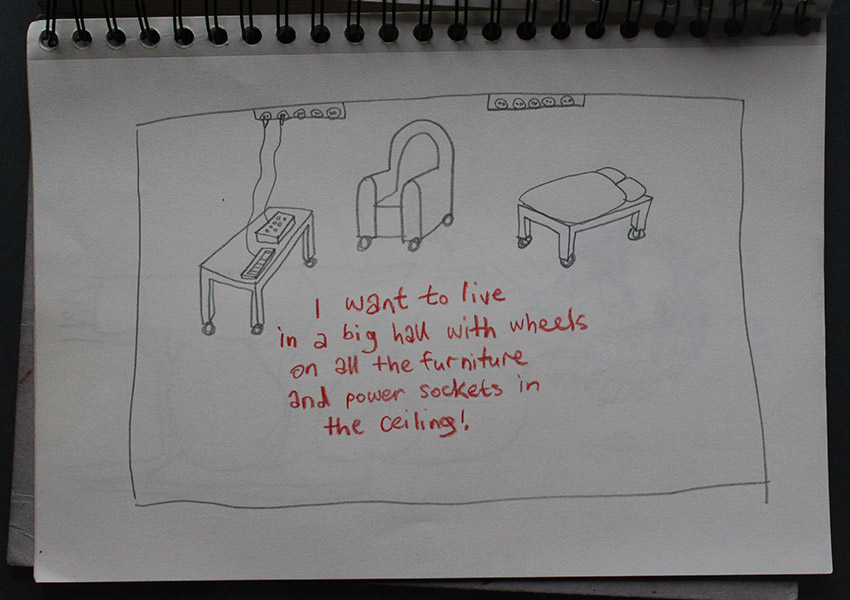 I want to live
in a big hall with wheels
on all the furniture
and power sockets in
the ceiling!